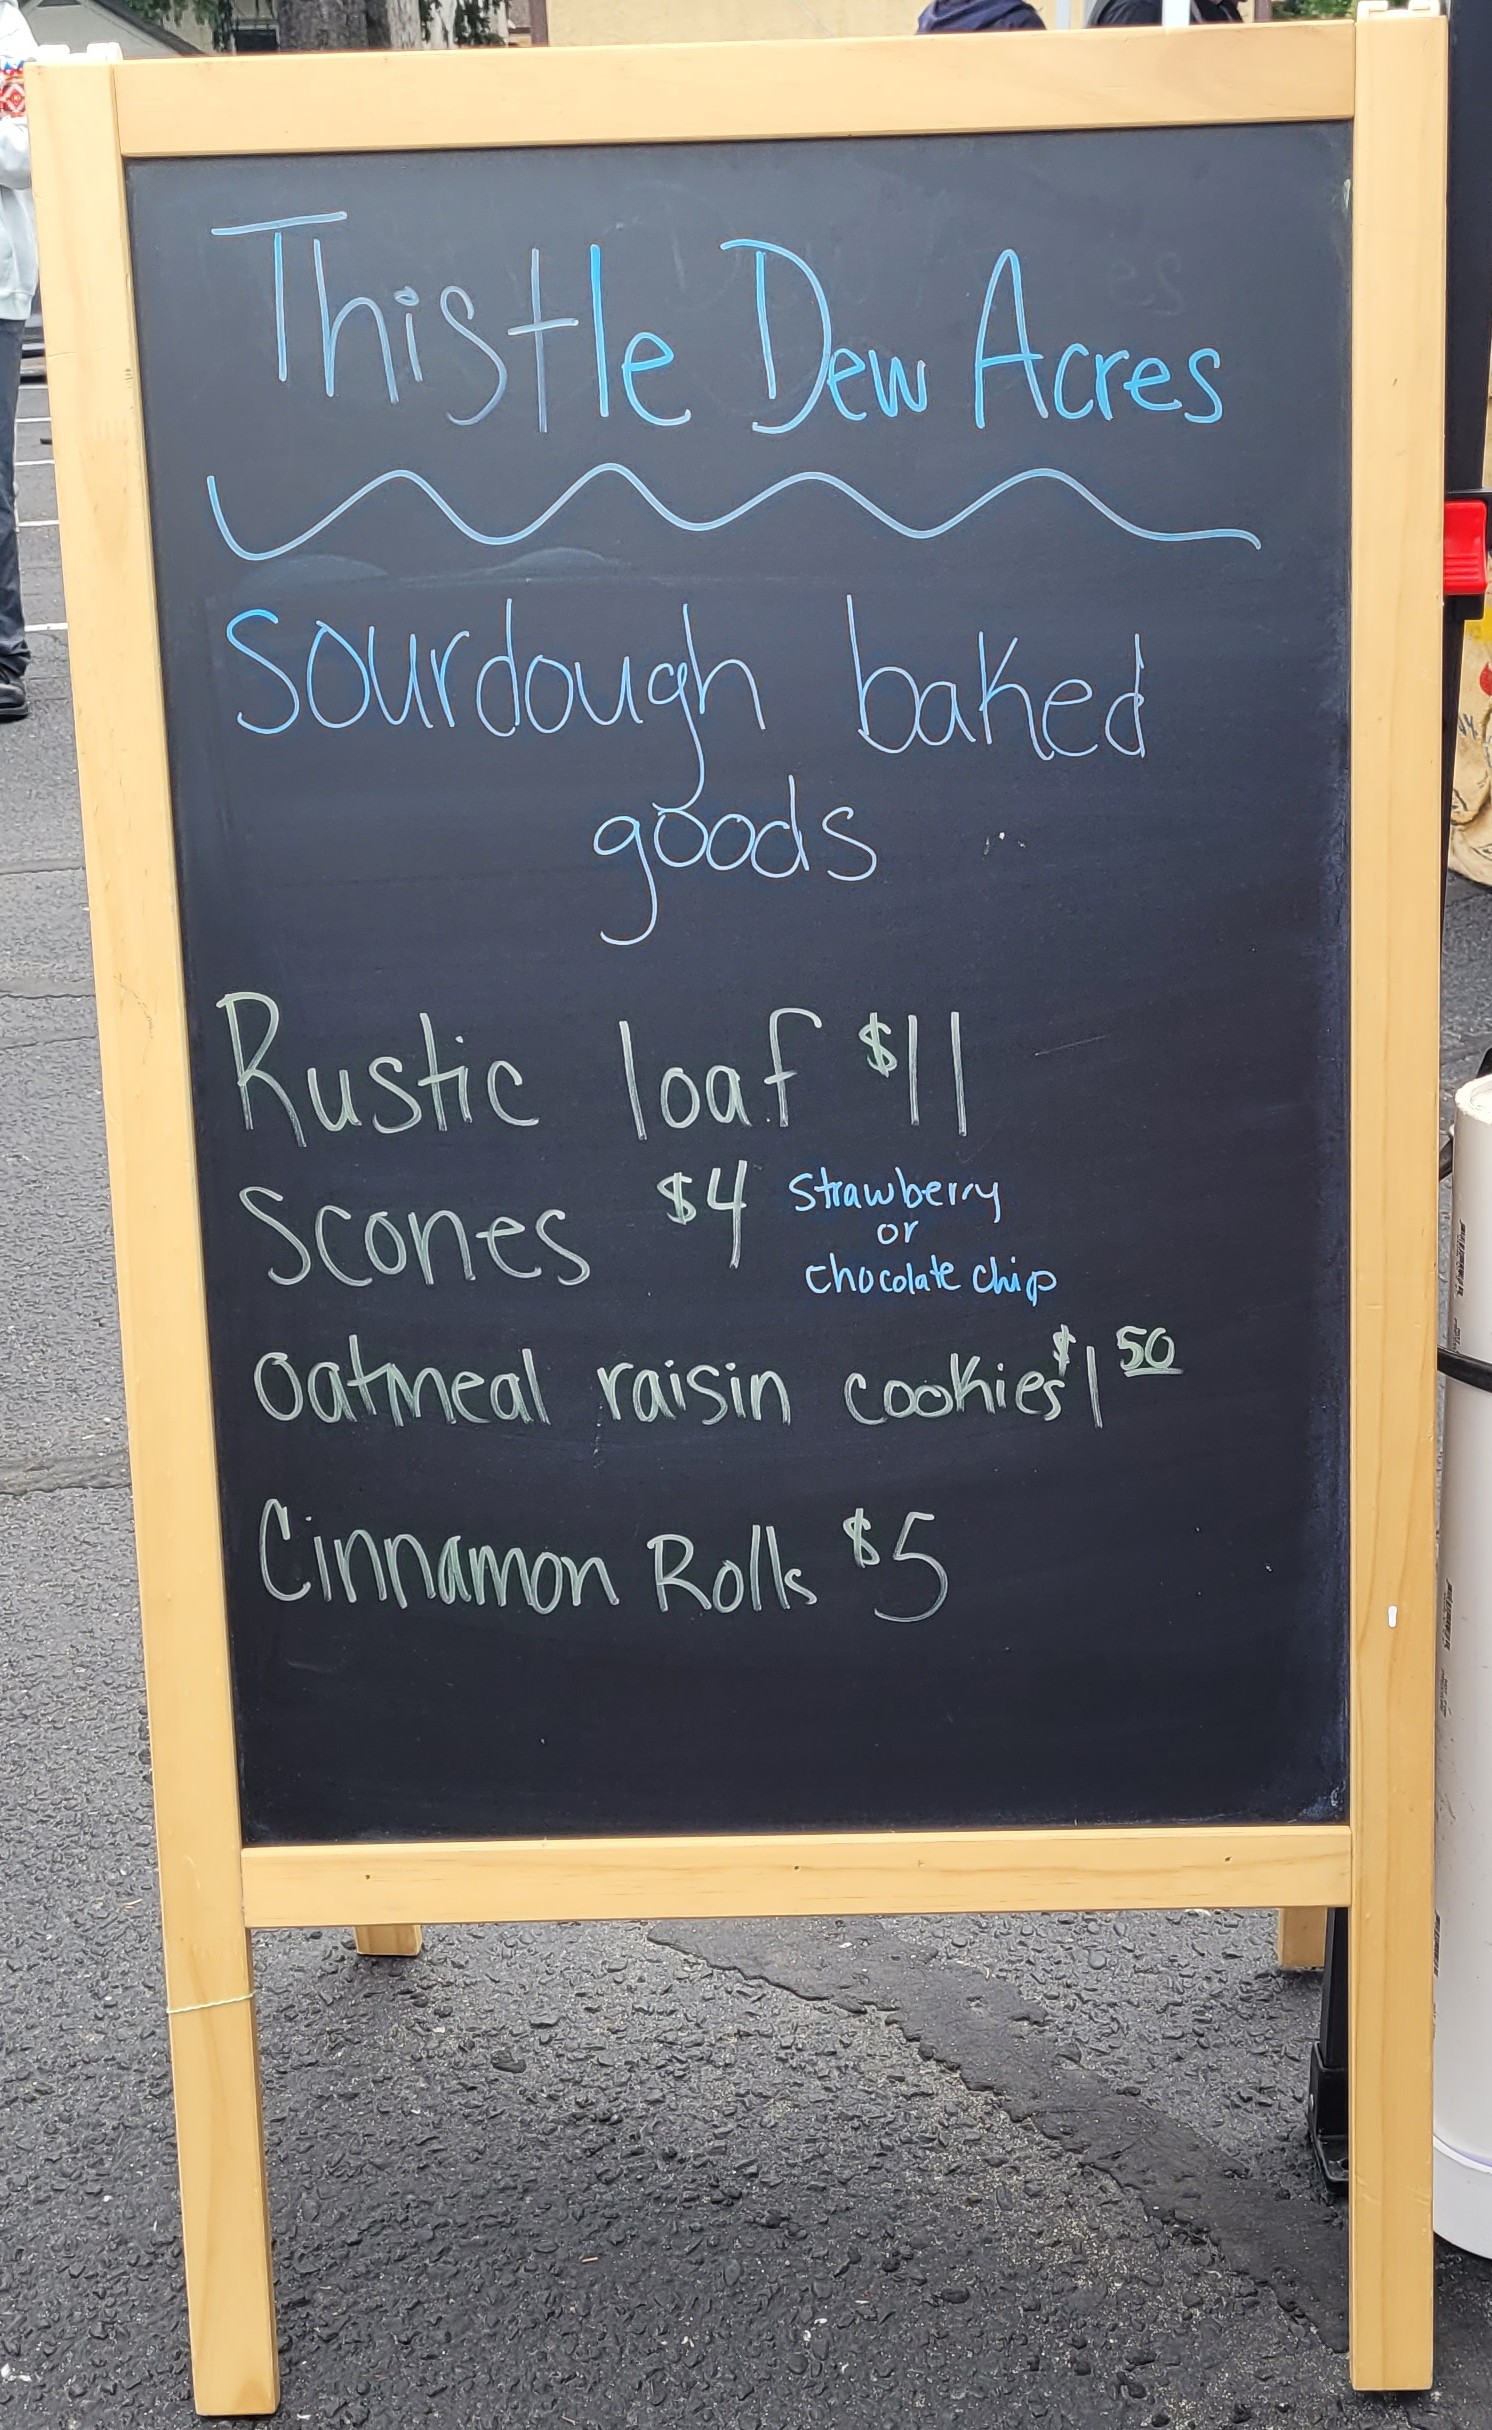 Thistle Dew Acres
Sourdough baked
goods
Rustic loaf $11
Scones $4 Strawberry
or
chocolate chip
oatmeal raisin cookies $1 50
Cinnamon Rolls $5